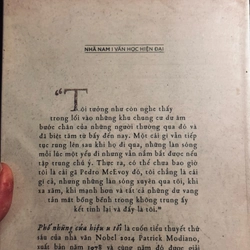 NHÃ NAM | VĂN HỌC HIỆN ĐẠI
"Tôi tưởng như còn nghe thấy
trong lối vào những khu chung cư dư âm
bước chân của những người thường qua đó và
đã biệt tăm từ bấy đến nay. Một cái gì vẫn tiếp
tục rung lên sau khi họ đi qua, những làn sóng
mỗi lúc một yếu đi nhưng vẫn nắm bắt được nếu
tập trung chú ý. Thực ra, có thể chưa bao giờ
tôi là cái gã Pedro McEvoy đó, tôi chẳng là cái
gì cả, nhưng những làn sóng xuyên qua tôi, khi
xa xăm, khi mạnh hơn và tất cả những dư vang
tản mát bồng bềnh trong không trung ấy
kết tinh lại và đấy là tôi."
Phố những cửa hiệu u tối là cuốn tiểu thuyết thứ
của nhà văn Nobel 2014 Patrick Modiano,
xuất bản năm 1978 và cùng năm đó được giải